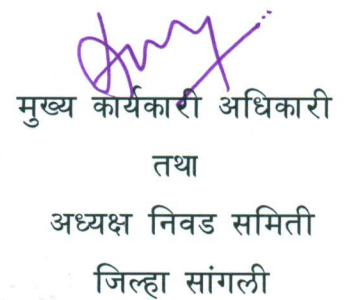 मुख्य कार्यकारी अधिकारी
तथा
अध्यक्ष निवड समिती
जिल्हा सांगली